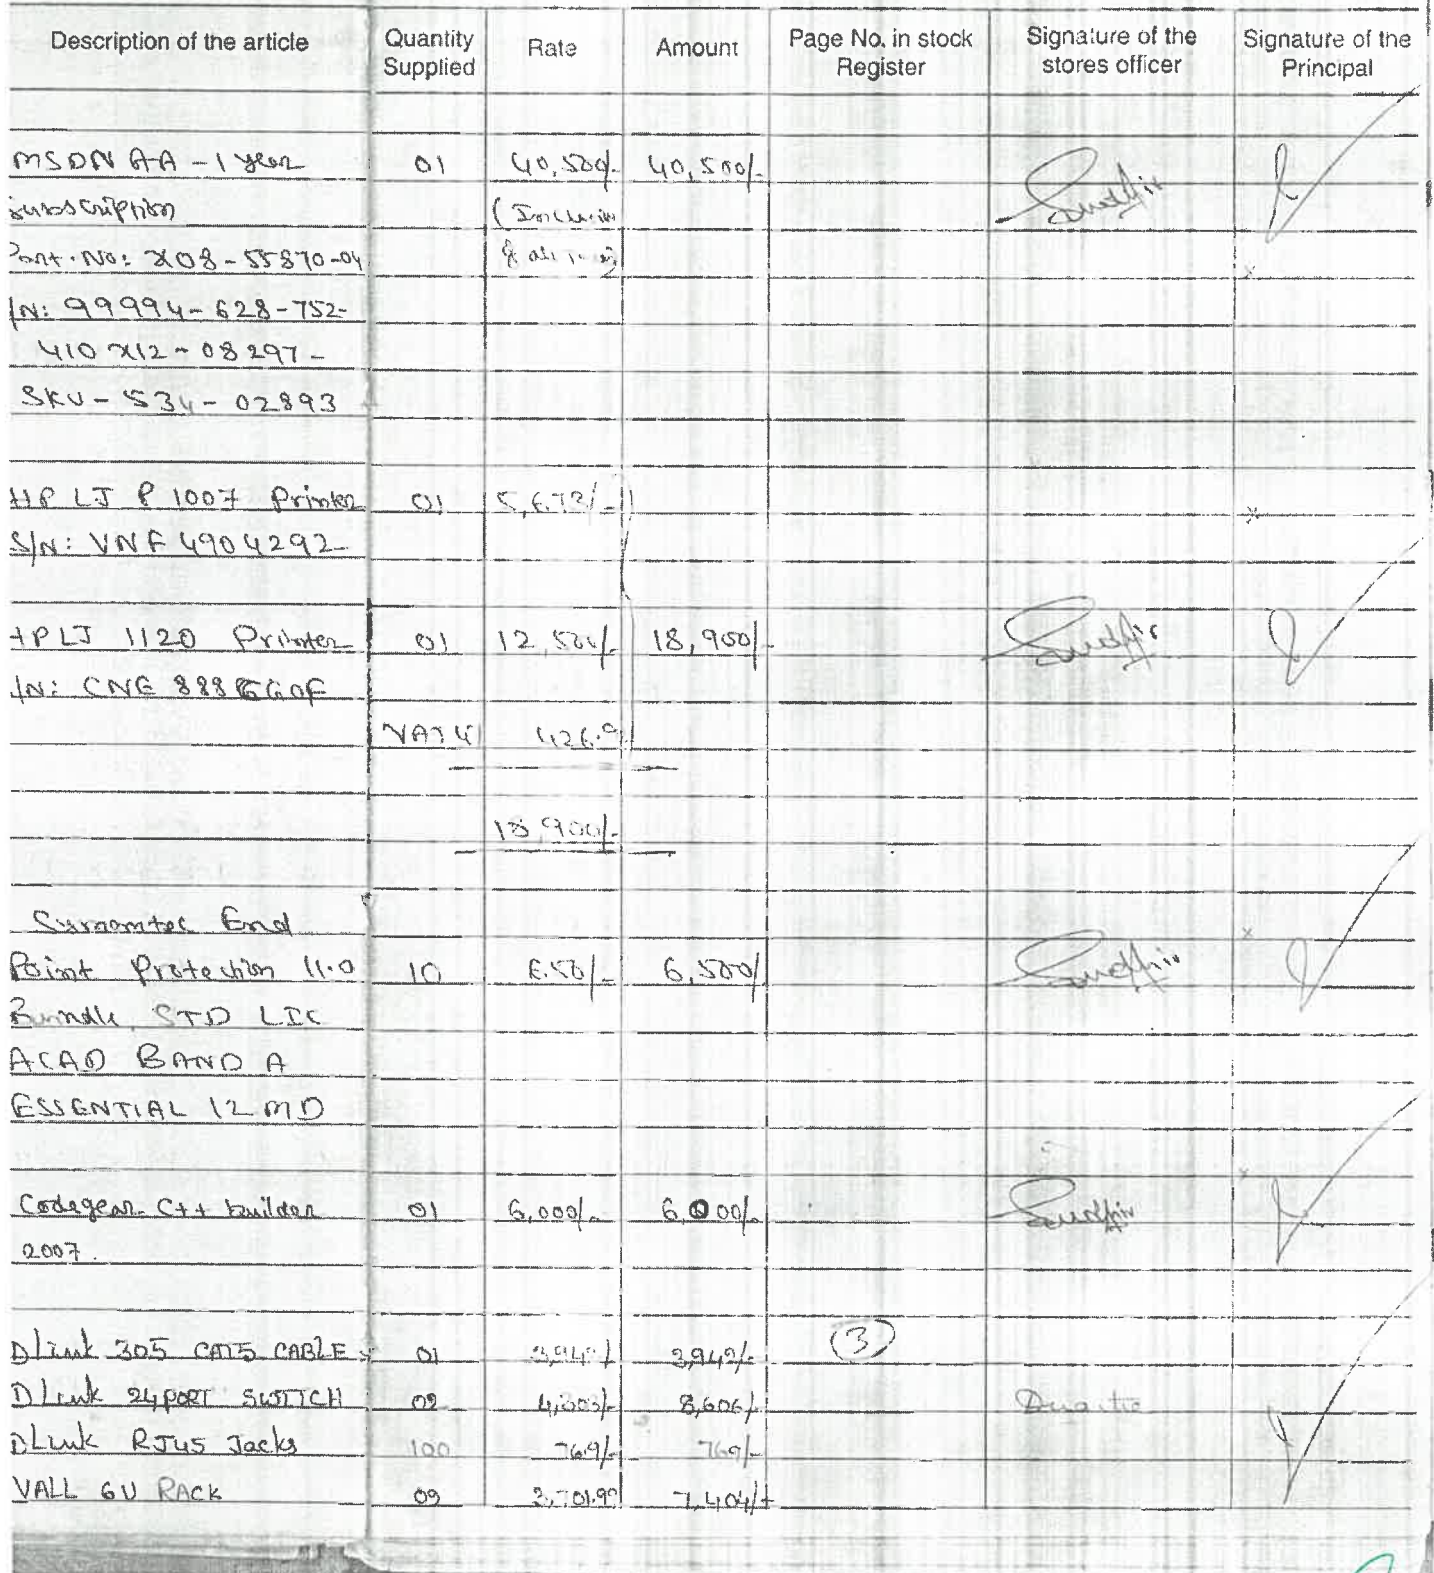 Description of the article Quantity Supplied Rate Amount Page No. in stock Register Signature of the stores officer Signature of the Principal
MSDN AA - 1 year 01 40,500/- 40,500/-
Subscription
Part. No: X08-55870-04
/N: 99994-628-752-
410 X12-08297-
SKU-534-02893
HP LJ P 1007 Printer 01 5,673/-
S/N: VNF 4904292
HP LJ 1120 Printer 01 12,500/- 18,900/-
/N: CNG
VAT 426.9
18,900/-
End
Point Protection 11.0 10 650/- 6,500/
Bundle, STD LIC
ACAD BAND A
ESSENTIAL 12 MO
Codegear C++ builder 01 6,000/- 6,000/-
2007.
DLink 305 CAT5 CABLE 01 3,942/- 3
DLink 24 PORT SWITCH 02 4,303/- 8,606/-
DLink RJ45 Jacks 100 769/- 769/-
VALL 6U RACK 7,404/-